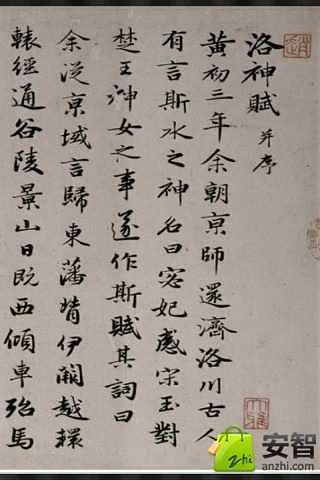 洛神賦 并序
黃初三年余朝京師還濟洛川古人
有言斯水之神名曰宓妃感宋玉對
楚王神女之事遂作斯賦其詞曰
余從京域言歸東藩背伊闕越轘
轅經通谷陵景山日既西傾車殆馬
zhi
安智
anzhi.com